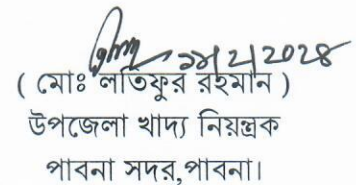 ( মোঃ লতিফুর রহমান )
উপজেলা খাদ্য নিয়ন্ত্রক
পাবনা সদর,পাবনা।